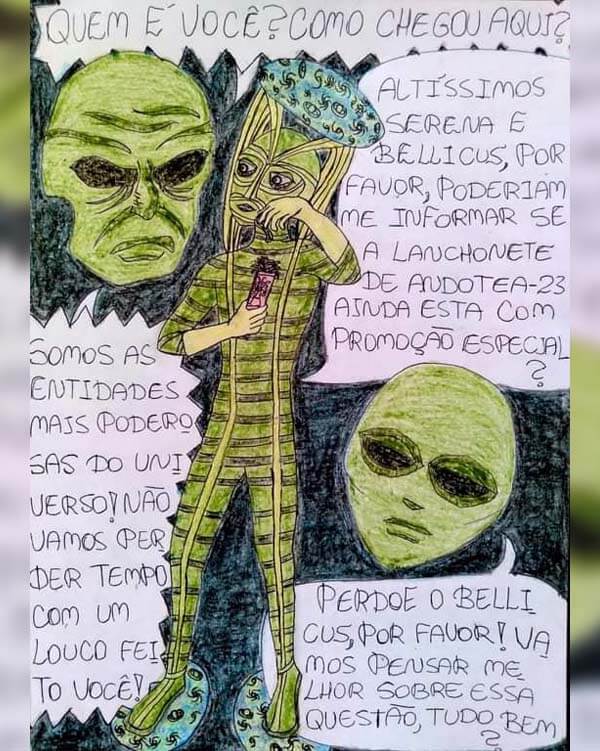 QUEM É VOCÊ? COMO CHEGOU AQUI?
ALTÍSSIMOS
SERENA E
BELLICUS, POR
FAVOR, PODERIAM
ME INFORMAR SE
A LANCHONETE
DE ANDOTEA-23
AINDA ESTA COM
PROMOÇÃO ESPECIAL
?
SOMOS AS
ENTIDADES
MAIS PODERO
SAS DO UNI
VERSO! NÃO
VAMOS PER
DER TEMPO
COM UM
LOUCO FEI
TO VOCÊ!
PERDOE O BELLI
CUS, POR FAVOR! VA
MOS PENSAR ME
LHOR SOBRE ESSA
QUESTÃO, TUDO BEM
?